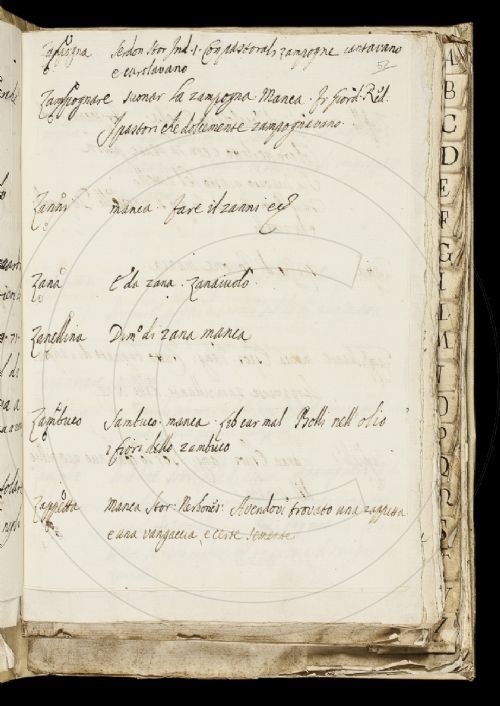 52
Zampogna Serdon Stor Ind. 1. Con pastorali zampogne cantavano
e
Zampognare suonar la zampogna Manca. Fr Giord. Red.
I pastori che dolcemente zampognavano
Zanni manca fare il zanni
Zana E da zana. Zanaiuolo
Zanellina Dim.o di zana manca
Zambuco Sambuco manca. Feb car mal Bolli nell olio
i fiori dello zambuco
Zappetta Manca Stor: Nerbones: Avendovi trovato una zappetta
e una vangaccia, e certe semente
A
B
C
D
E
F
G
I
L
M
N
O
P
Q
R
S
Z